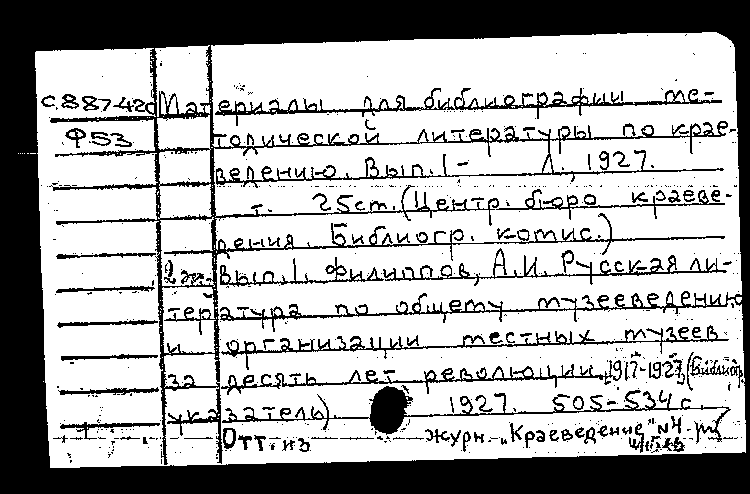 С.887-420 Материалы для библиографии ме-
Ф53 тодической литературы по крае-
ведению. Вып.1- Л., 1927.
т. 25см. (Центр. бюро краеве-
дения. Библиогр. комис.)
2 эк. Вып.1. Филиппов, А.И. Русская ли-
тература по общему музееведению
и организации местных музеев
за десять лет революции. 1917-1927. (Библиогр.
указатель). 1927. 505-534 с.
Отт. из журн. „Краеведение" №4